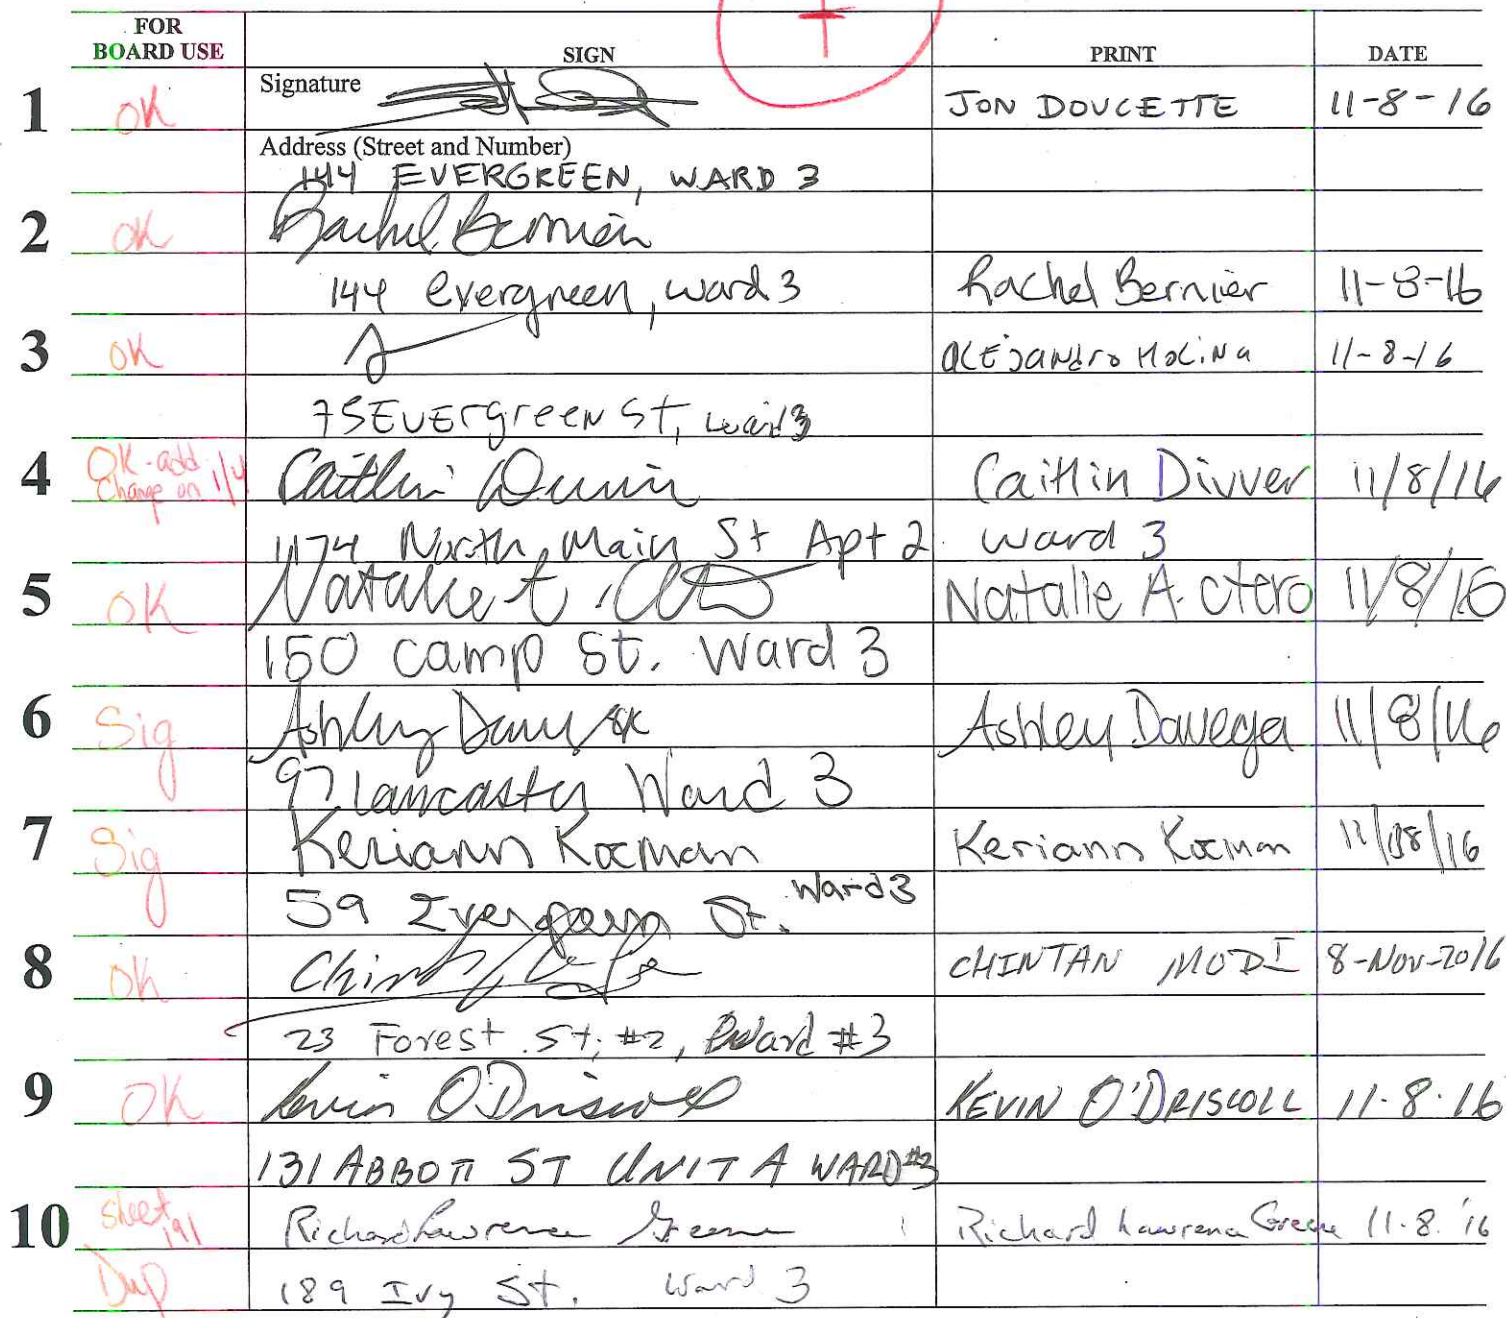 FOR BOARD USE SIGN PRINT DATE
1 OK Signature JON DOUCETTE 11-8-16
Address (Street and Number)
144 EVERGREEN, WARD 3
2 OK Rachel Bernier
144 evergreen, ward 3 Rachel Bernier 11-8-16
3 OK ALEJANDRO MOLINA 11-8-16
75 EVErgreen St, ward 3
4 OK-add change on Caitlin Divver Caitlin Divver 11/8/16
1174 North Main St Apt 2 ward 3
5 OK Natalie A. Otero 11/8/16
150 camp St. Ward 3
6 Sig Ashley Ashley Davega 11/8/16
97 Lancaster Ward 3
7 Sig Keriann Kocman Keriann Kocman 11/08/16
59 Evergreen St. Ward 3
8 OK CHINTAN MODI 8-Nov-2016
23 Forest St, #2, Ward #3
9 OK Kevin O'Driscoll KEVIN O'DRISCOLL 11.8.16
131 ABBOTT ST UNIT A WARD #3
10 Sheet 191 Richard Lawrence Greene Richard Lawrence Greene 11.8.'16
Dup 189 Ivy St. Ward 3